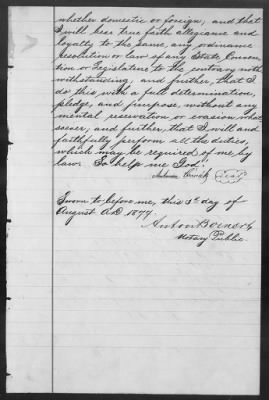 whether domestic or foreign, and that
I will bear true faith allegiance and
loyalty to the same, any ordinance
resolution or law of any State Conven
tion or Legislature to the contrary noth
withstanding, and further, that I
do this with a full determination,
pledge, and purpose, without any
mental reservation or evasion what
soever, and further, that I will and
faithfully perform all the duties,
which may be required of me, by
law. So help me God."
Seal
Sworn to before me, this 3d day of
August A.D 1877.
Anton
Notary Public.